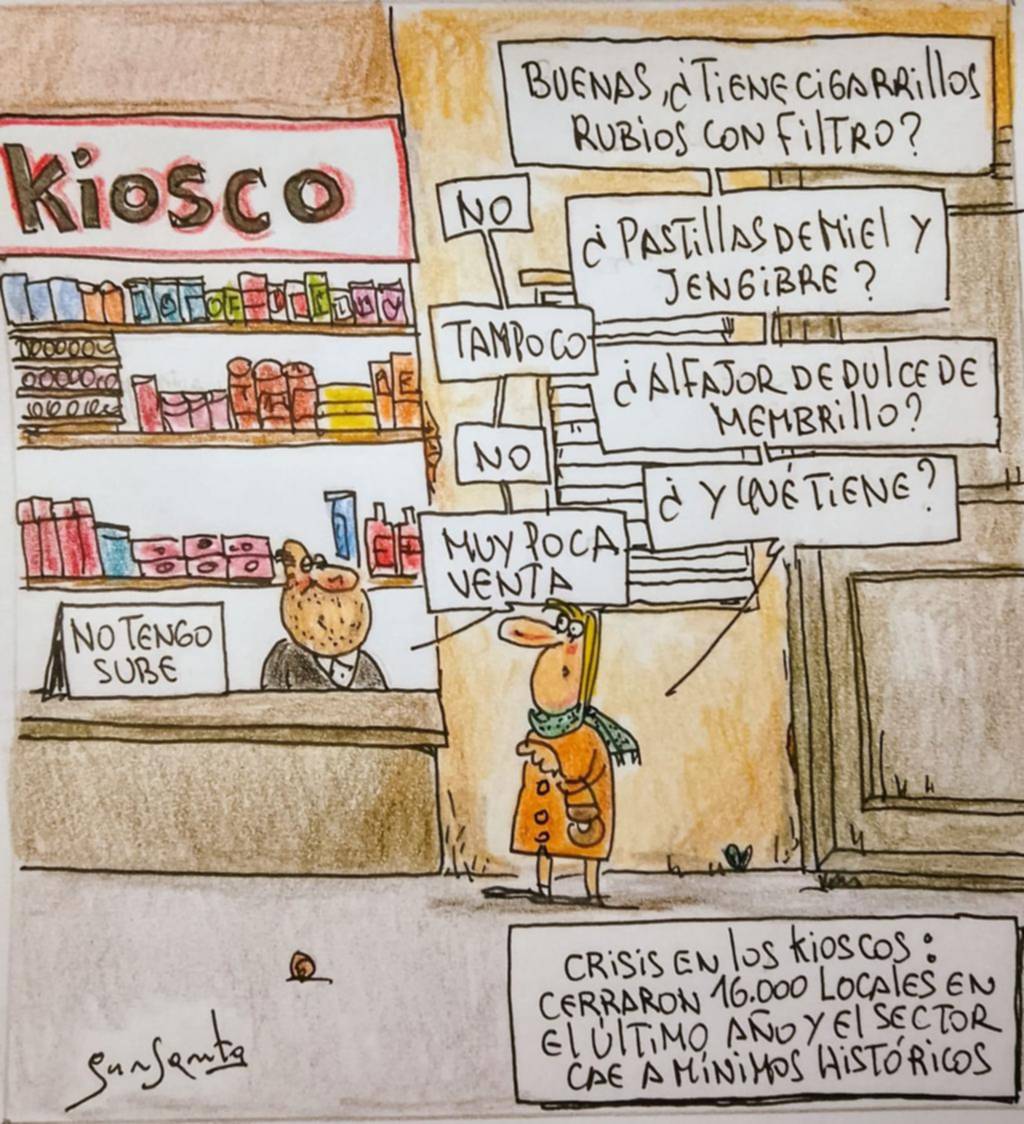 Kiosco
BUENAS, ¿TIENE CIGARRILLOS
RUBIOS CON FILTRO?
NO
¿PASTILLAS DE MIEL Y
JENGIBRE?
TAMPOCO
¿ALFAJOR DE DULCE DE
MEMBRILLO?
NO
¿Y QUÉ TIENE?
MUY POCA
VENTA
NO TENGO
SUBE
CRISIS EN LOS KIOSCOS:
CERRARON 16.000 LOCALES EN
EL ÚLTIMO AÑO Y EL SECTOR
CAE A MÍNIMOS HISTÓRICOS